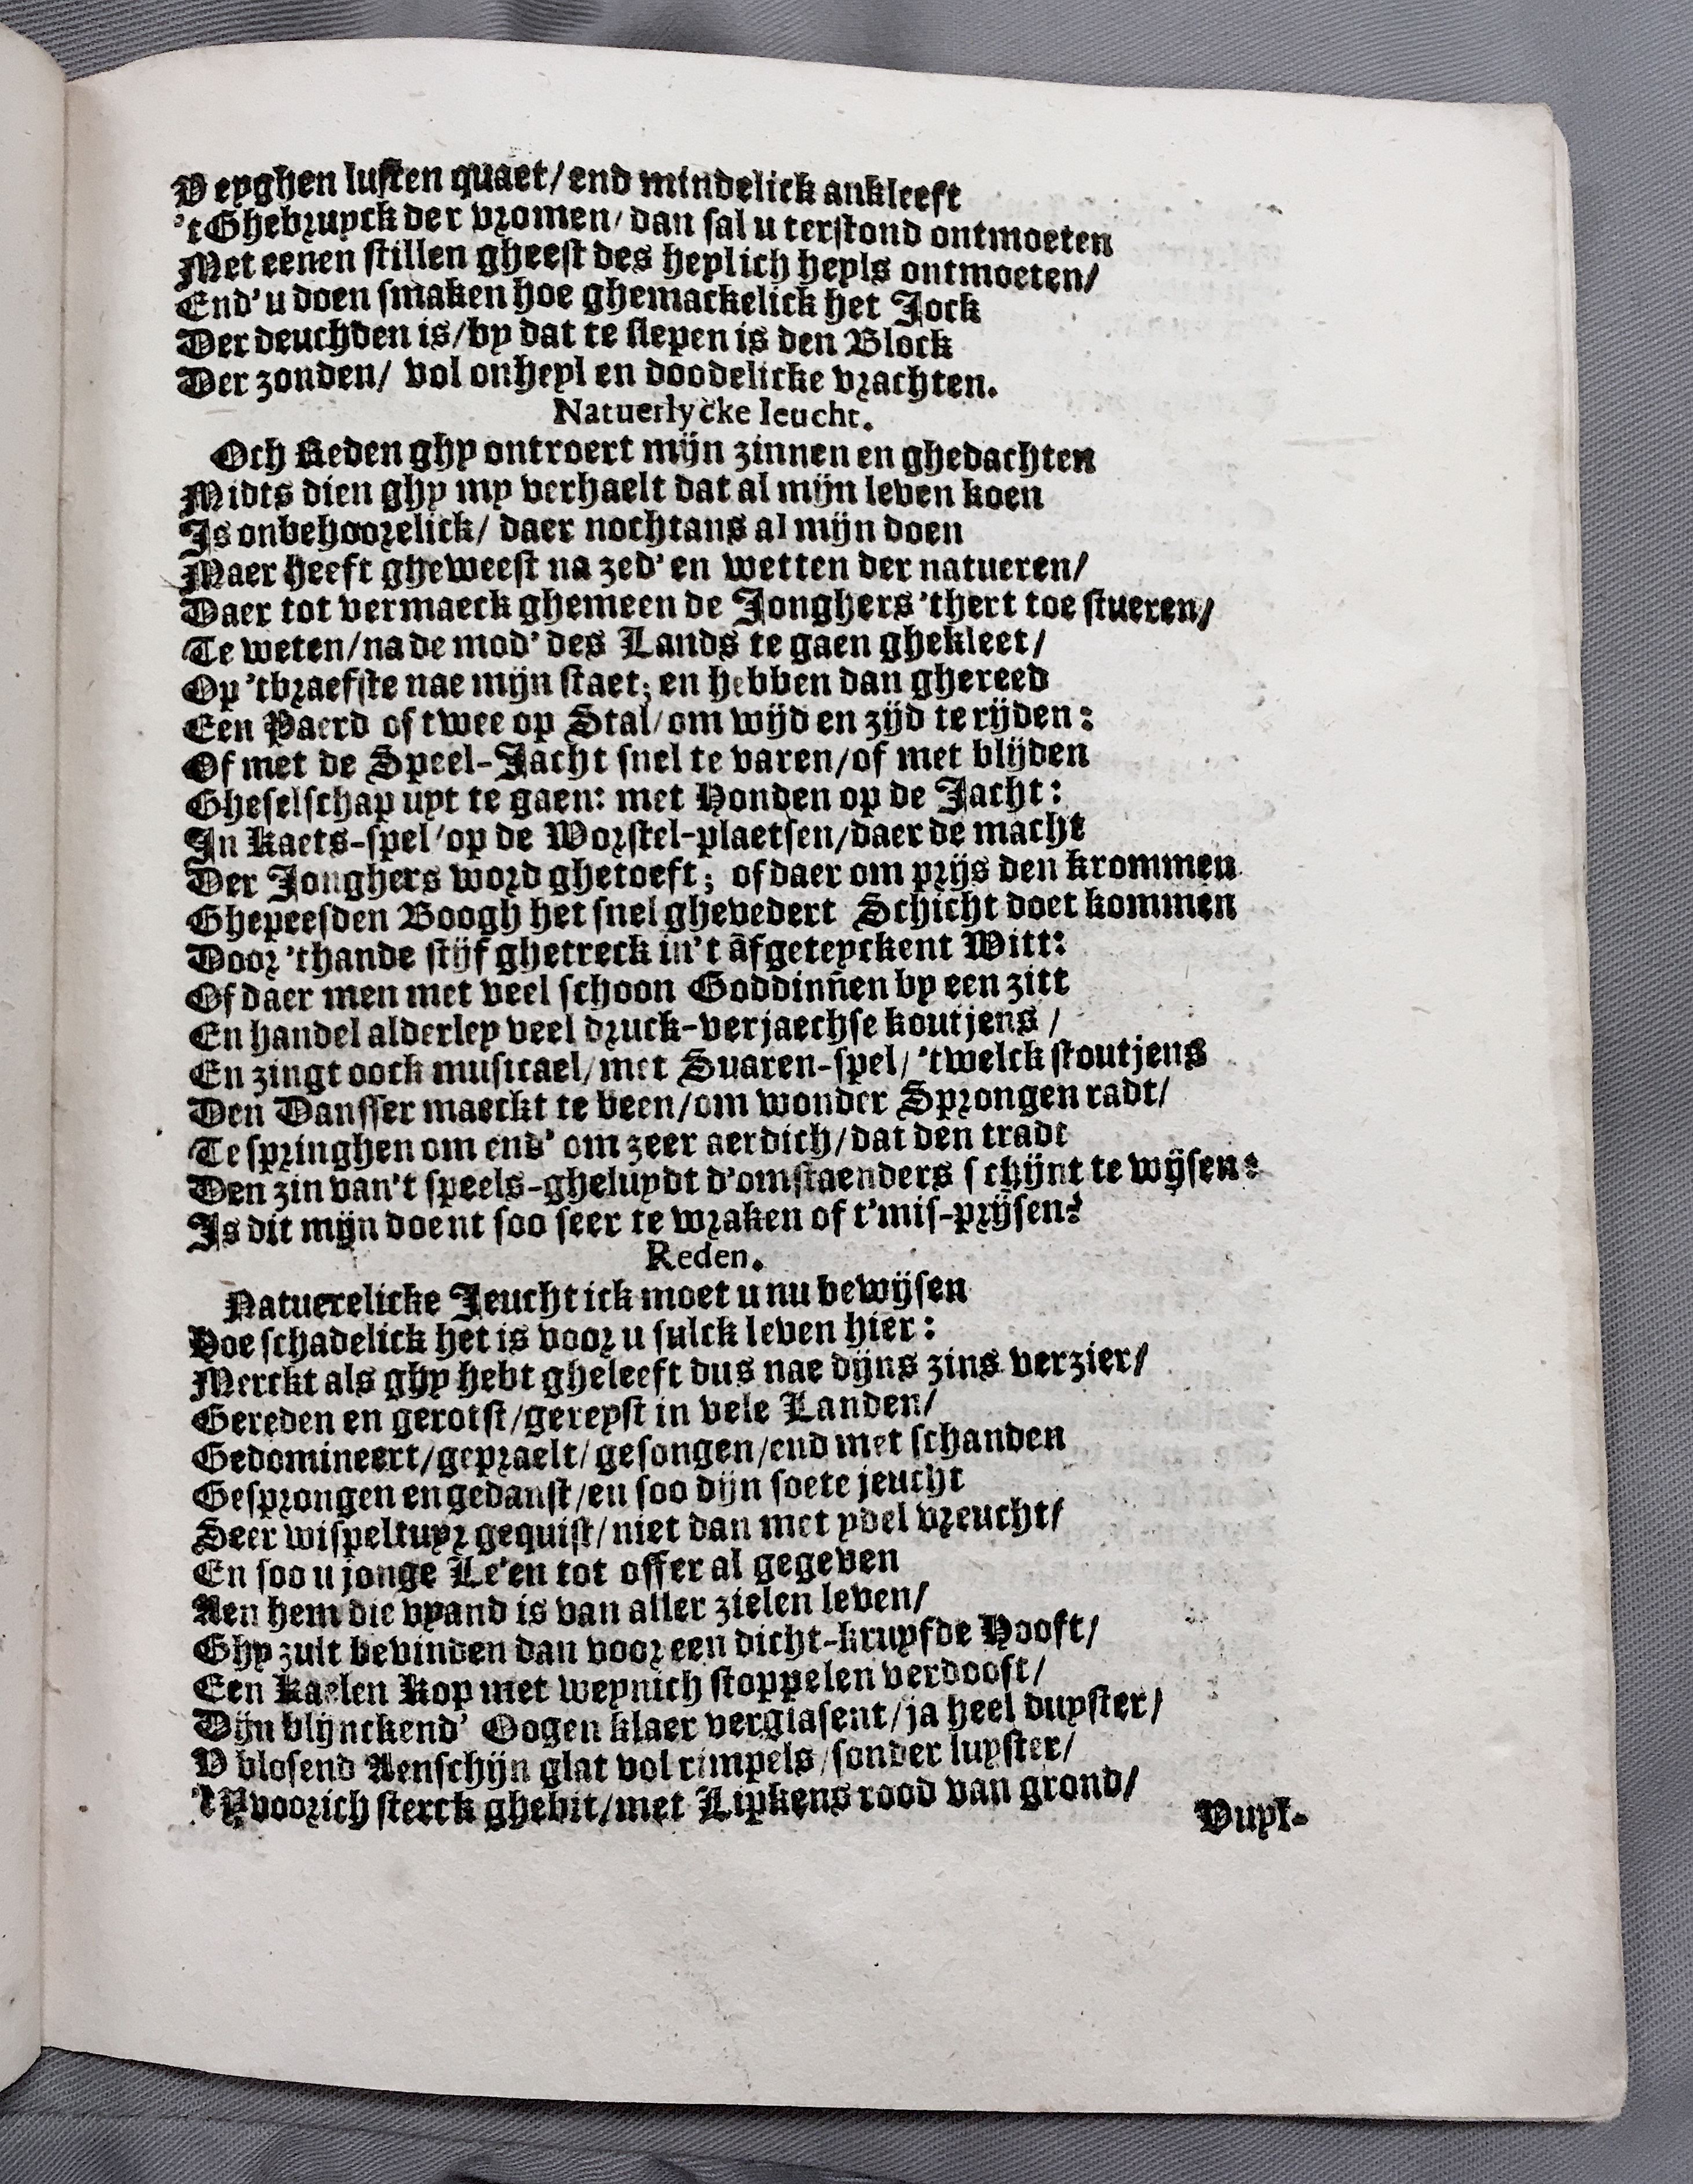 V eyghen lusten quaet/ end mindelick ankleeft
't Ghebruyck der vromen/ dan sal u terstond ontmoeten
Met eenen stillen gheest des heylich heyls ontmoeten/
End' u doen smaken hoe ghemackelick het Jock
Der deuchden is/ by dat te slepen is den Block
Der zonden/ vol onheyl en doodelicke vrachten.
Natuerlycke Ieucht.
Och Reden ghy ontroert mijn zinnen en ghedachten
Midts dien ghy my verhaelt dat al mijn leven koen
Is onbehoorelick/ daer nochtans al mijn doen
Maer heeft gheweest na zed' en wetten der natueren/
Daer tot vermaeck ghemeen de Jonghers 'thert toe stueren/
Te weten/ na de mod' des Lands te gaen ghekleet/
Op 'tbraefste nae mijn staet; en hebben dan ghereed
Een Paerd of twee op Stal/ om wijd en zijd te rijden:
Of met de Speel-Jacht snel te varen/ of met blijden
Gheselschap uyt te gaen: met Honden op de Jacht:
In Kaets-spel/ op de Worstel-plaetsen/ daer de macht
Der Jonghers word ghetoeft; of daer om prijs den krommen
Ghepeesden Boogh het snel ghevedert Schicht doet kommen
Door 'thande stijf ghetreck in't âfgeteyckent Witt:
Of daer men met veel schoon Goddinñen by een zitt
En handel alderley veel druck-verjaechse koutjens/
En zingt oock musicael/ met Snaren-spel/ 'twelck stoutjens
Den Dansser maeckt te been/ om wonder Sprongen radt/
Te springhen om end' om zeer aerdich/ dat den tradt
Den zin van't speels-gheluydt d'omstaenders schijnt te wijsen:
Is dit mijn doent soo seer te wraken of t'mis-prijsen?
Reden.
Natuerelicke Jeucht ick moet u nu bewijsen
Hoe schadelick het is voor u sulck leven hier:
Merckt als ghy hebt gheleeft dus nae dijns zins verzier/
Gereden en gerotst/ gereyst in vele Landen/
Gedomineert/ gepraelt/ gesongen/ end met schanden
Gesprongen en gedanst/ en soo dijn soete jeucht
Seer wispeltuyr gequist/ niet dan met ydel vreucht/
En soo u jonge Le'en tot offer al gegeven
Aen hem die vyand is van aller zielen leven/
Ghy zult bevinden dan voor een dicht-kruyfde Hooft/
Een Kaelen Kop met weynich stoppelen verdooft/
Dijn blijnckend' Oogen klaer verglasent/ ja heel duyster/
V blosend Aenschijn glat vol rimpels/ sonder luyster/
't Yvoorich sterck ghebit/ met Lipkens rood van grond/
Vuyl-